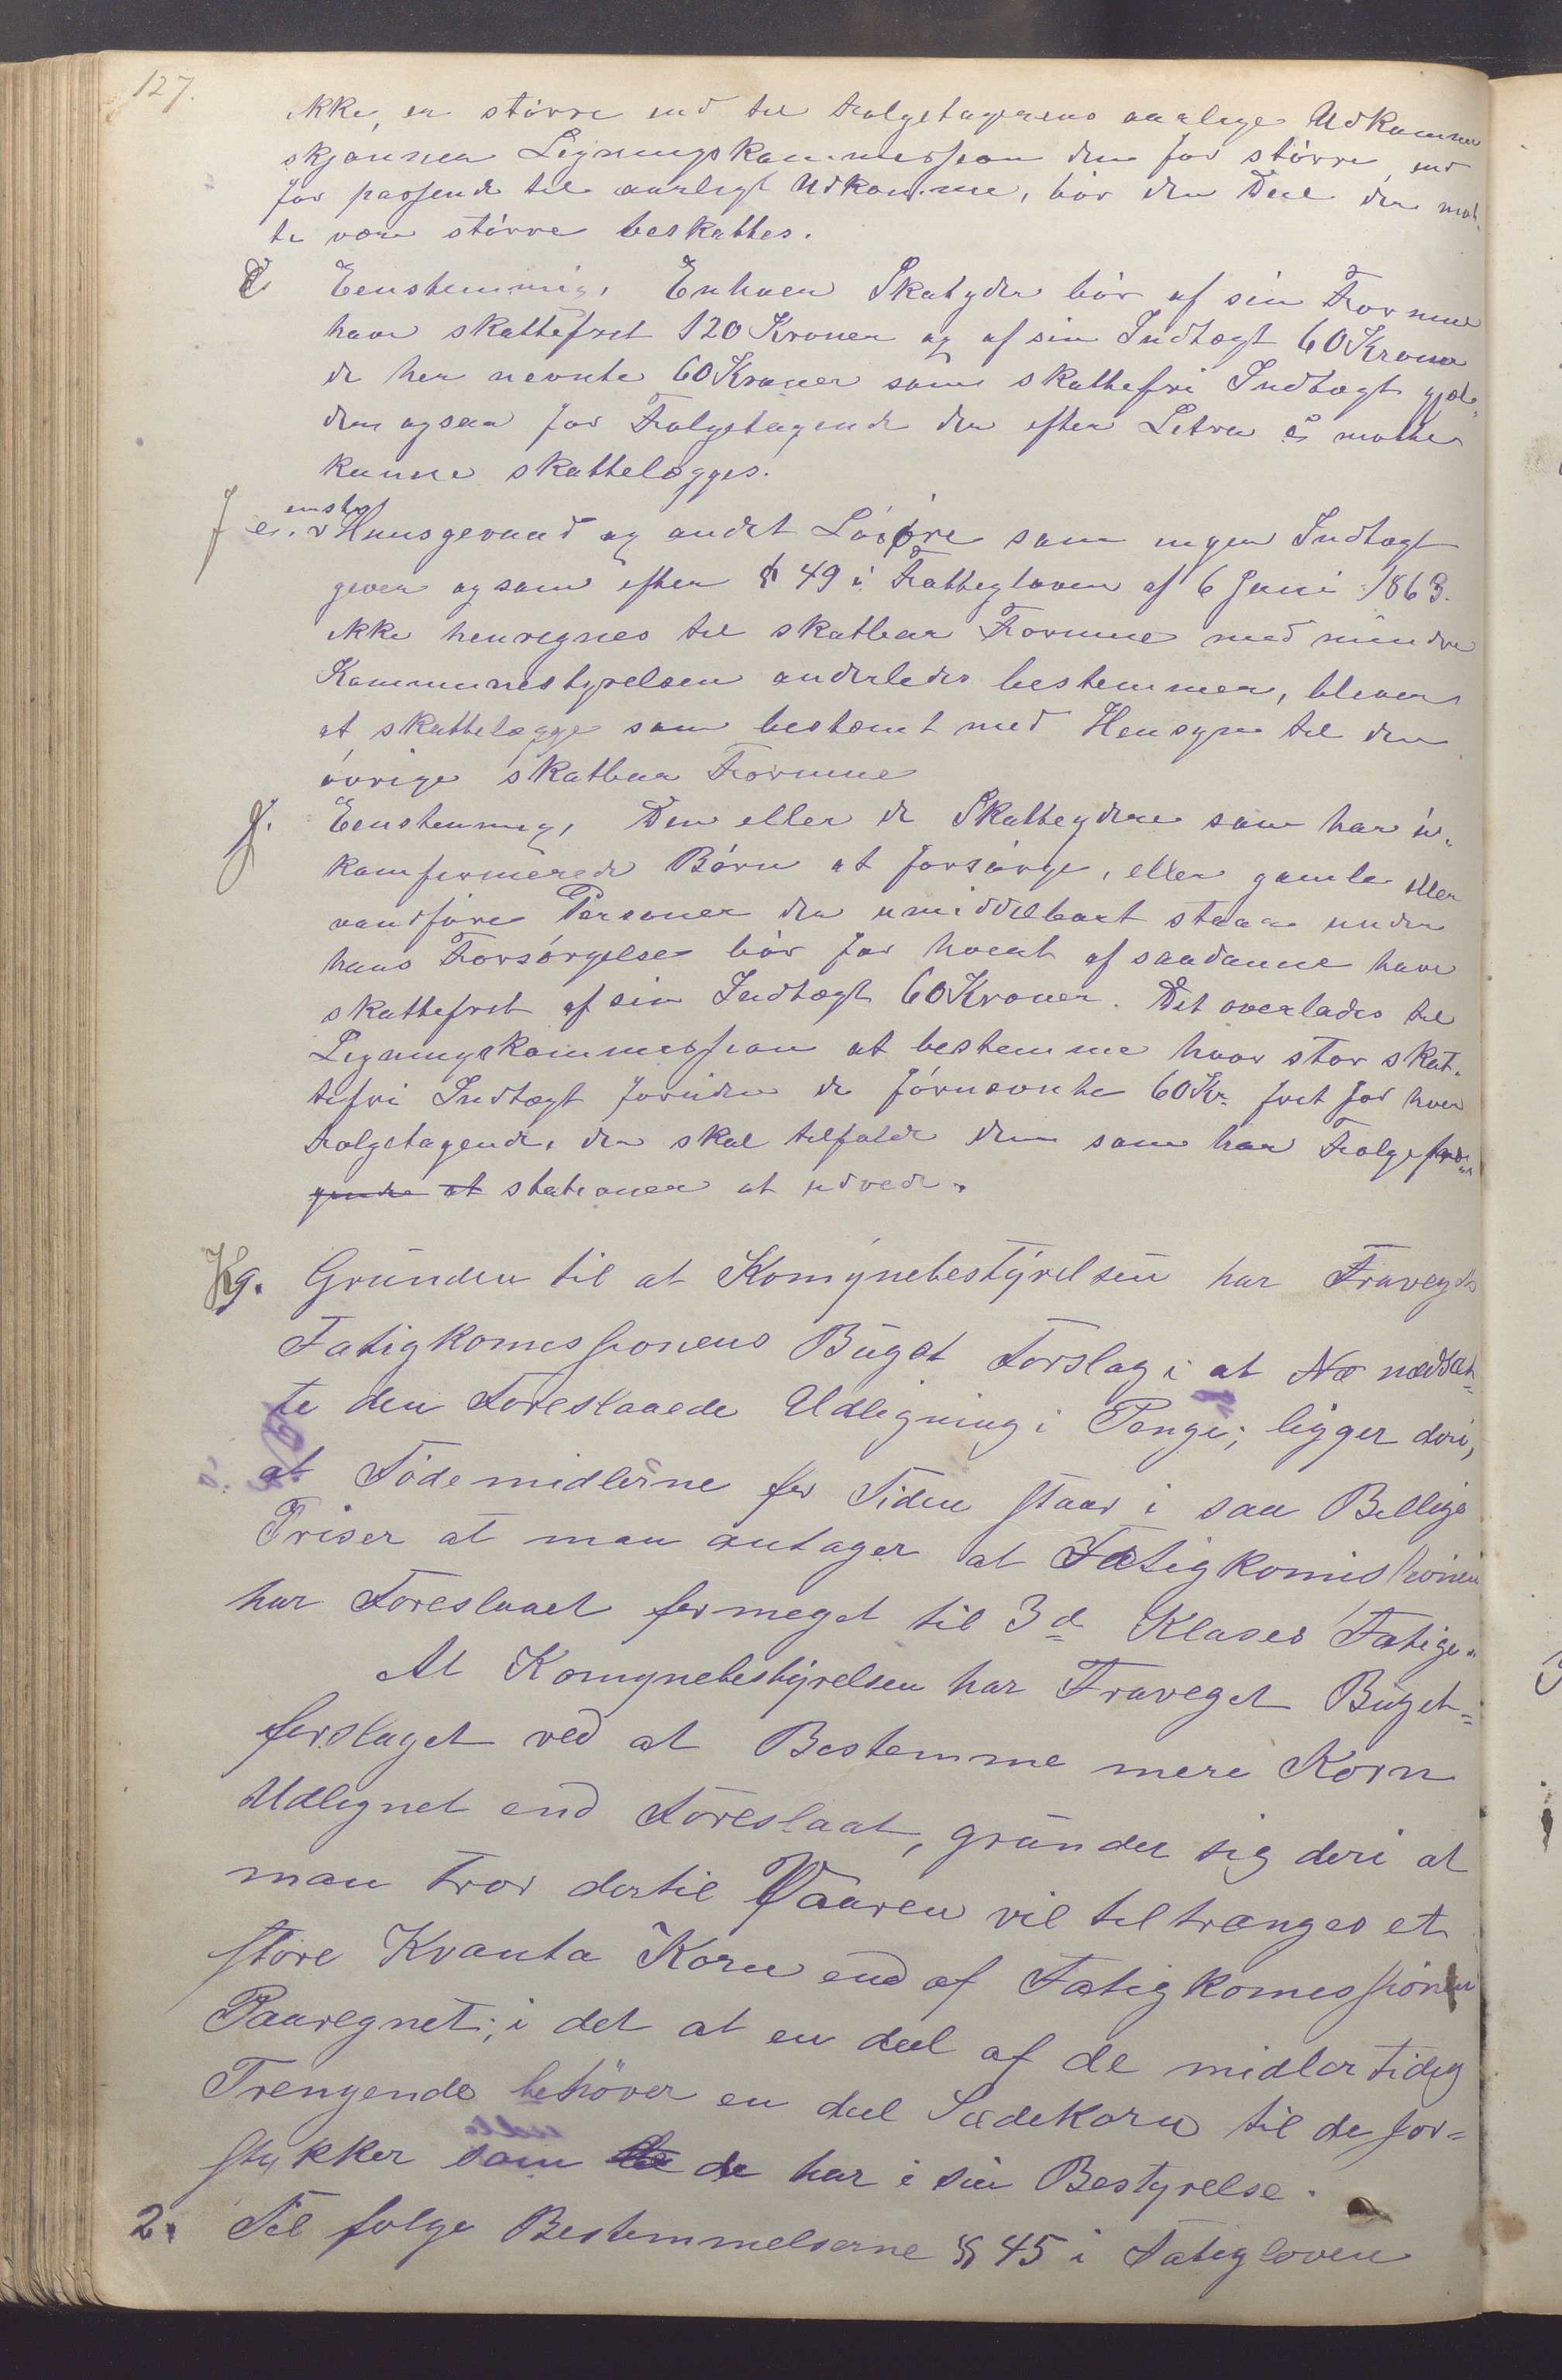 127.
ikke er större end til Folgetagerens aarlige Udkomme
skjønner Ligningskommissjon den for större end
for passende til aarligt Udkomme, bör den Deel der mot-
te være större beskattes.
Eenstemmig, Enhver Skatyder bör af sin Formue
have skattefrit 120 Kroner og af sin Indtægt 60 Kroner
de her nevnte 60 Kroner som skattefri Indtægt gjæl-
der ogsaa for Folgetagende der efter Litra motte
kunne skattelægges.
f e. eenst. Huusgeraad og andet Lösöre som ingen Indtægt
giver og som efter § 49 i Fattigloven af 6 Juni 1863.
ikke henregnes til skatbar Formue med mindre
Kommunestyrelsen anderledes bestemmer, bliver
at skattelægge som bestemt med Hensyn til den
övrige skatbar Formue
Eenstemmig, Den eller de Skatteydere som har u-
komfirmerede Börn at forsörge, eller gamle eller
vanföre Personer der umiddelbart staar under
hans Forsörgelse bör for hvert af saadanne have
skattefrit af sin Indtægt 60 Kroner. Det overlades til
Ligningskommissjon at bestemme hvor stor skat-
tefri Indtægt foruden de förnevnte 60 Kr. frit for hver
Folgetagende, der skal tilfalde dem som har Folge
gende at stationer at udrede.
g. Grunden til at Komynebestyrelsen har Fraveget
Fatigkomissionens Büget Forslag i at nedsæt=
te den Foreslaaede Udligning i Penge; ligger deri,
at Födemidlerne for Tiden staar i saa Bellige
Priser at man antager at Fatigkomissionen
har Foreslaaet formeget til 3d Klases Fatige.
At Komynebestyrelsen har Fraveget Büget=
forslaget ved at Bestemme mere Korn
Udlignet end Foreslaat, grunder sig deri at
man tror dertil Vaaren vil tiltrænges et
störe Kvanta Korn end af Fatigkomissionen
Paaregnet; i det at en deel af de midlertidig
Trengende behöver en deel Sædekorn til de jor=
stykker som de har i sin Bestyrelse.
2. Til folge Bestemmelserne § 45 i Fatigloven